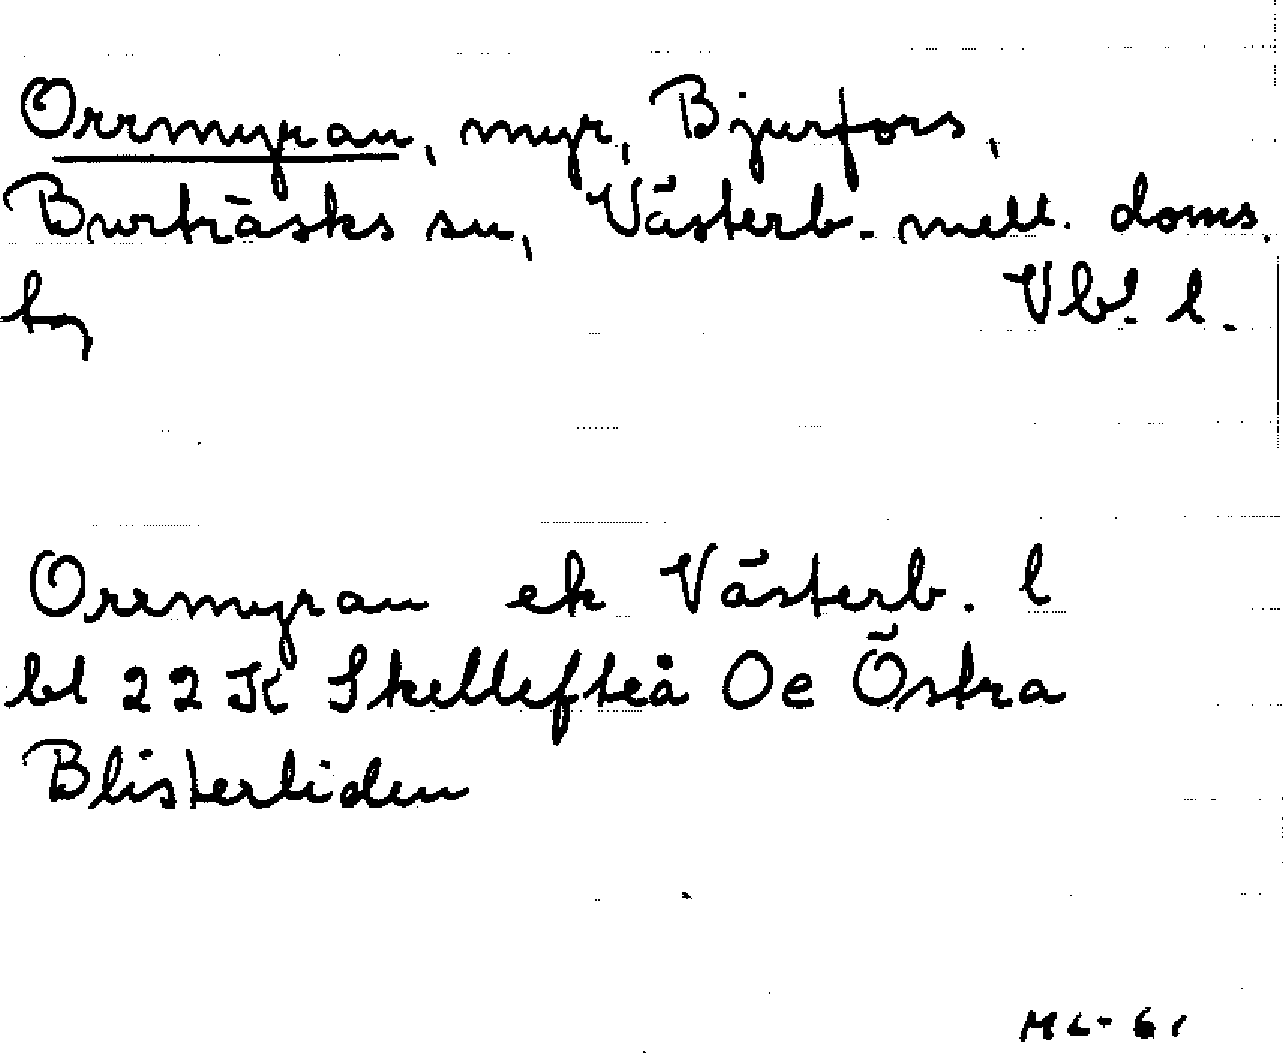 Orrmyran, myr, Bjurfors,
Burträsks sn, Västerb. mell. doms.
hg Vb. l.
Orrmyran ek Västerb. l
bl 22 K Skellefteå Oe Östra
Blisterliden
ML-61